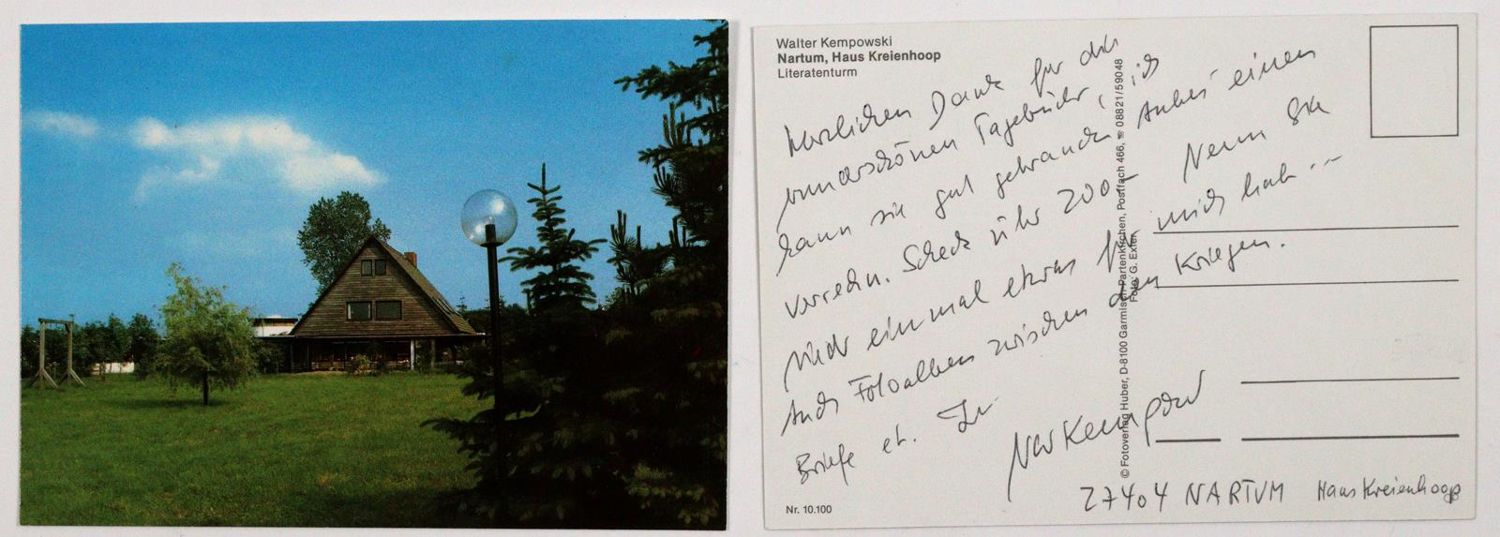 Walter Kempowski
Nartum, Haus Kreienhoop
Literatenturm
Herzlichen Dank für die
wunderschönen Tagebücher, ich
kann sie gut gebrauchen. Anbei einen
Verrechn. Scheck über 200.- Wenn Sie
wieder einmal etwas für mich hab...
Auch Fotoalben zwischen den Kriegen.
Briefe et. Ihr
Kempow
27404 NARTUM Haus Kreienhoop
Nr. 10.100
© Fotoverlag Huber, D-8100 Garmisch-Partenkirchen, Postfach 466, ☎ 08821/59048
Foto: G. Exler